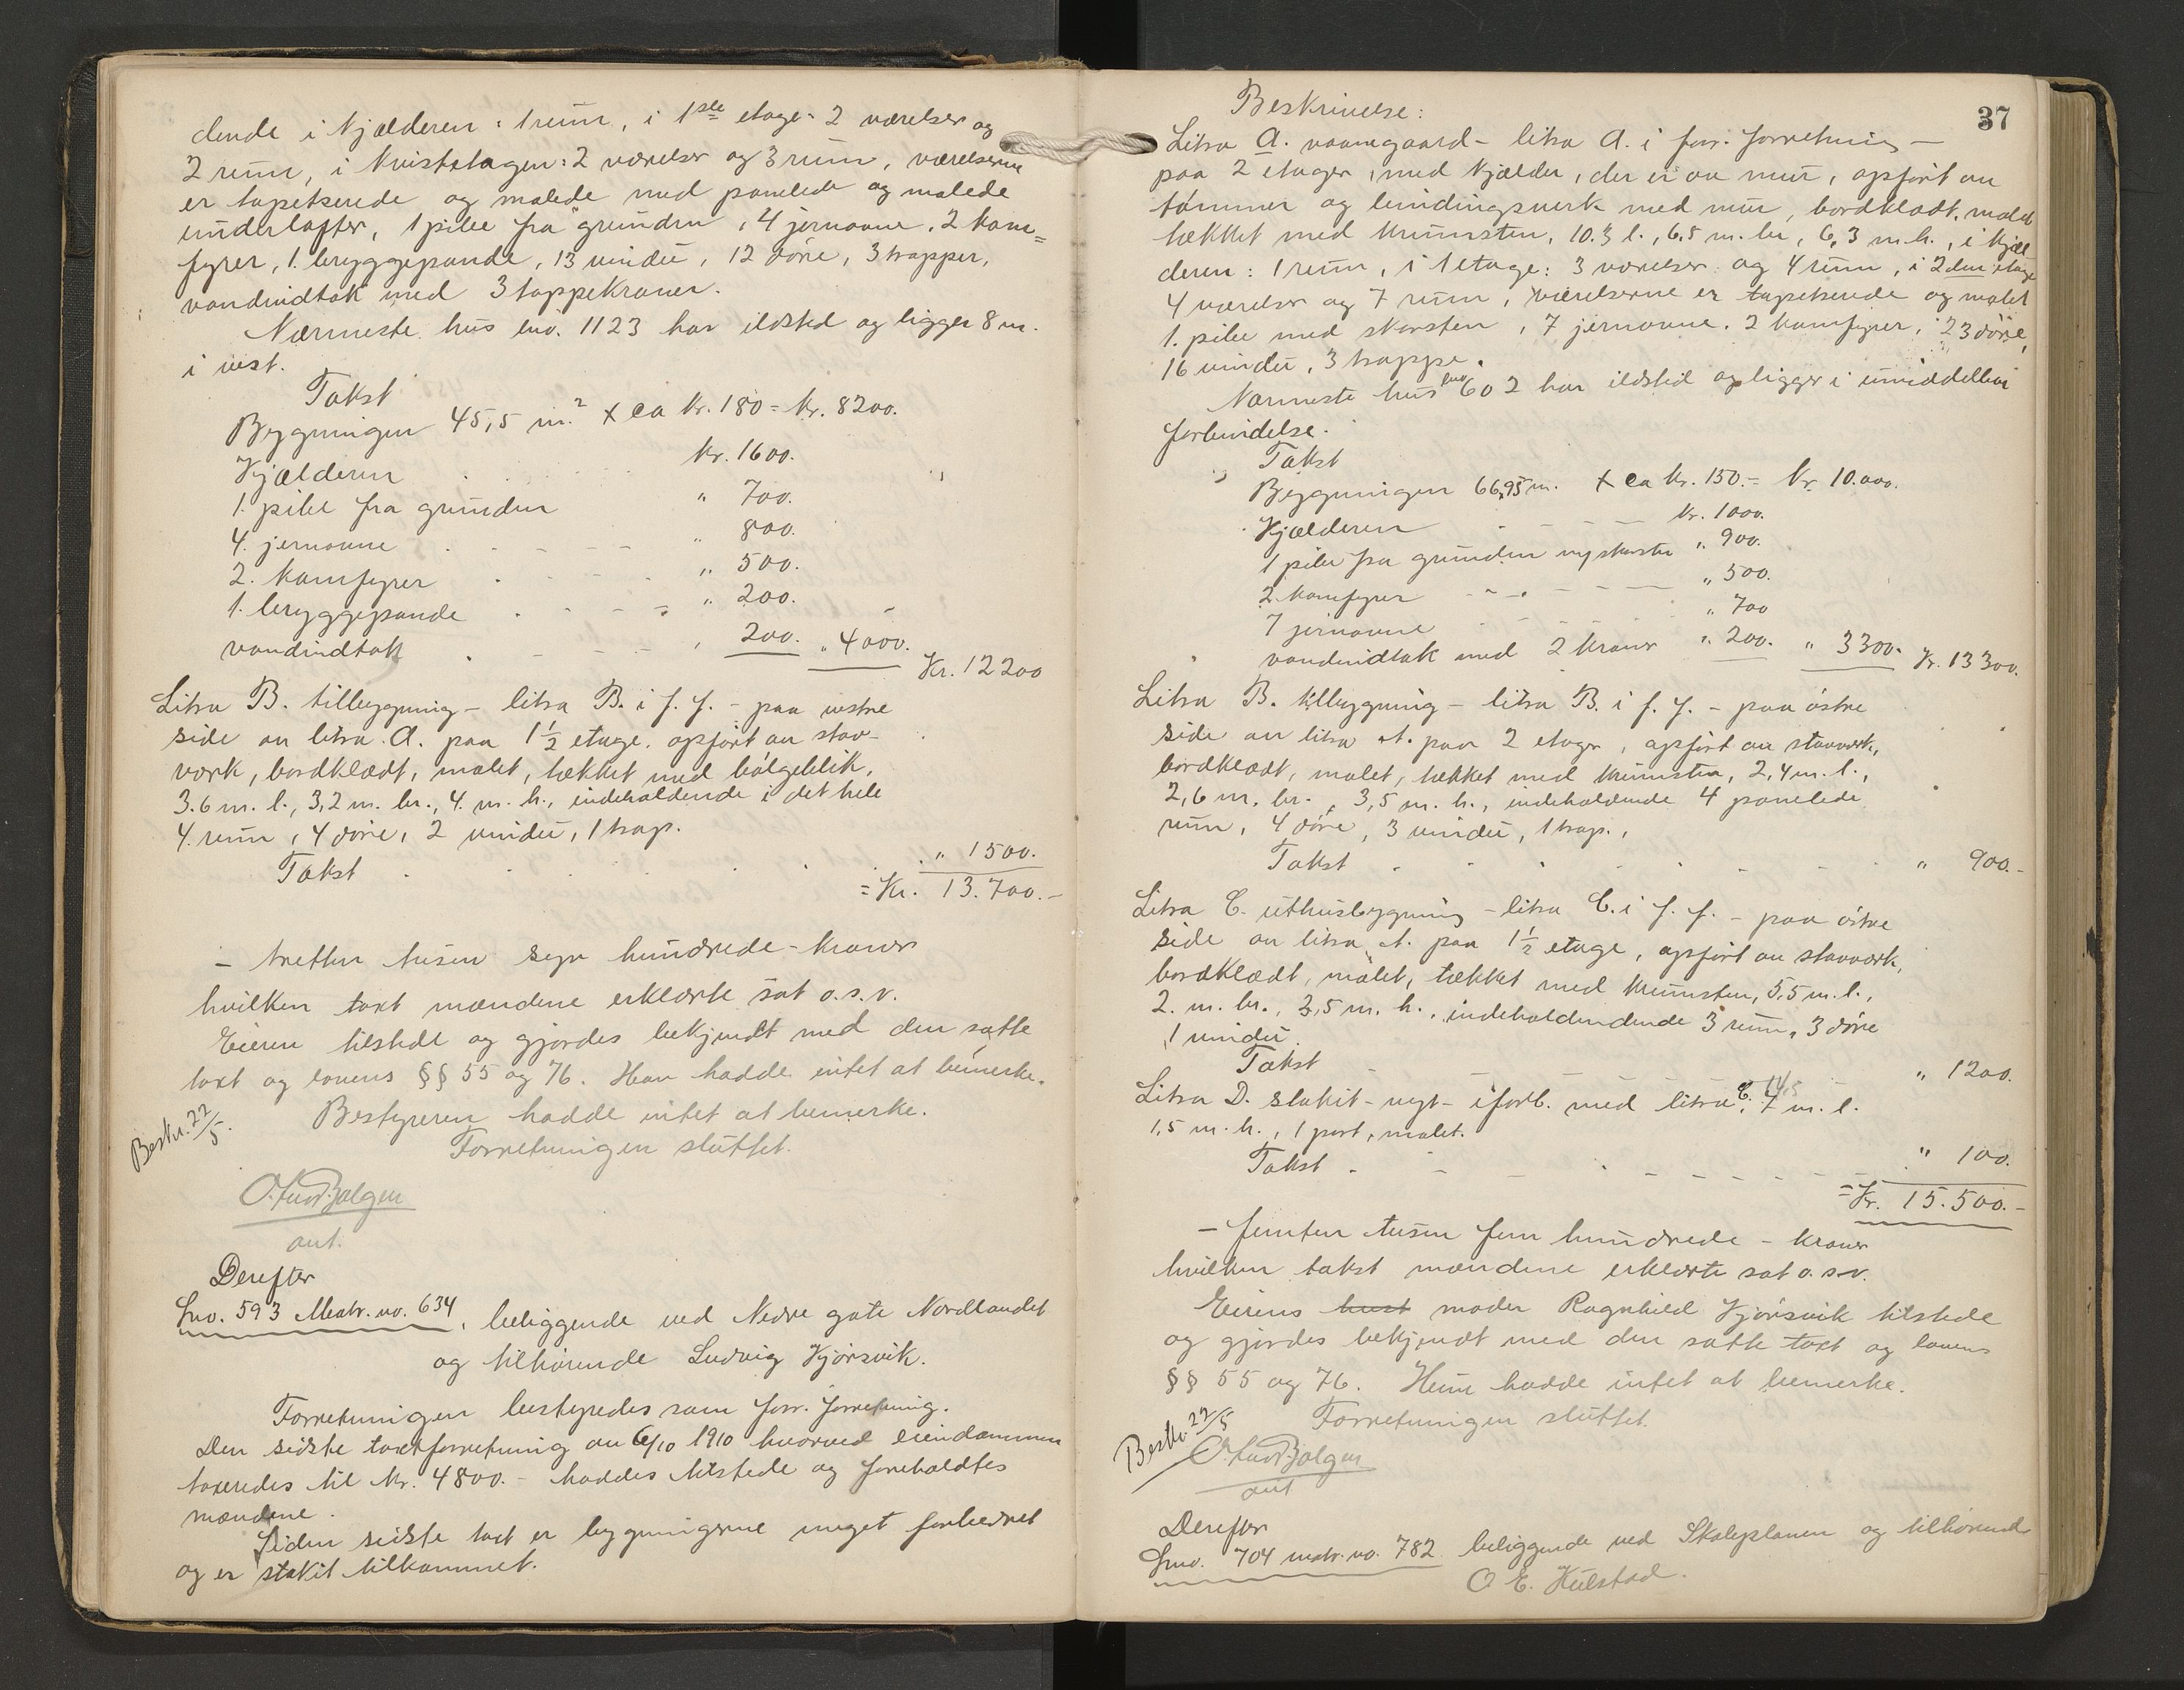 dende i kjælderen: 1 rum, i 1ste etage: 2 værelser og
2 rum, i kvistetagen: 2 værelser og 3 rum, værelserne
er tapetserede og malede med panelede og malede
underlofter, 1 pibe fra grunden, 4 jernovne, 2 kom=
fyrer, 1. bryggepande, 13 vinduer, 12 døre, 3 trapper,
vandindtak med 3 tappekraner.
Nærmeste hus lno. 1123 har ildsted og ligger 8 m.
i vest.
Takst
Bygningen 45,5 m.² x ca kr. 180 = kr. 8200.
Kjælderen kr. 1600.
1. pibe fra grunden " 700.
4. jernovne " 800.
2. komfyrer " 500.
1. bryggepande " 200.
vandindtak " 200. " 4000.
Kr. 12200
Litra B. tilbygning - litra B. i f. f. - paa vestre
side av litra A. paa 1½ etage. opført av stav-
værk, bordklædt, malet, tækket med bølgeblik,
3.6 m. l., 3,2 m. br., 4. m. h., indeholdende i det hele
4. rum, 4 døre, 2 vinduer, 1 trap.
Takst " 1500.
= Kr. 13.700.-
- tretten tusen syv hundrede - kroner
hvilken taxt mændene erklærte sat o.s.v.
Eieren tilstede og gjordes bekjendt med den satte
taxt og lovens §§ 55 og 76. Han hadde intet at bemerke.
Bestyreren hadde intet at bemerke.
Beskr. 22/5.
Forretningen sluttet.
O. Ludv. Bolgen
aut.
Derefter
Lno. 593 Matr. no. 634, beliggende ved Nedre gate Nordlandet
og tilhørende Ludvig Kjørsvik.
Forretningen bestyredes som forr. forretning.
Den sidste taxtforretning av 6/10 1910 hvorved eiendommen
taxeredes til kr. 4800.- haddes tilstede og foreholdtes
mændene.
Siden sidste taxt er bygningerne meget forbedret
og er stakit tilkommet.
37
Beskrivelse:
Litra A. vaanegaard - litra A. i forr. forretning -
paa 2 etager, med kjælder, der er av mur, opført av
tømmer og bindingsverk med mur, bordklædt, malet
tækket med krumsten, 10.3 l., 6,5 m. br, 6,3 m. h., i kjæl
deren: 1 rum, i 1 etage: 3 værelser og 4 rum, i 2den etage
4 værelser og 7 rum, værelserne er tapetserede og malet
1. pibe med skorsten, 7 jernovne. 2 komfyrer, 23 døre,
16 vinduer, 3 trapper.
Nærmeste hus lno 602 har ildsted og ligger i umiddelbar
forbindelse.
Takst
Bygningen 66,95 m. x ca kr. 150.- = kr. 10.000.
Kjælderen kr. 1000.
1 pibe fra grunden ny skorsten " 900.
2 komfyrer " 500.
7 jernovne " 700
vandindtak med 2 kraner " 200. " 3300. Kr. 13300.
Litra B. tilbygning - litra B. i f. f. - paa østre
side av litra A. paa 2 etager, opført av stavværk,
bordklædt, malet, tækket med krumsten, 2,4 m. l.,
2,6 m. br., 3,5 m. h., indeholdende 4 panelede
rum, 4 døre, 3 vinduer, 1 trap.,
Takst " 900.-
Litra C. uthusbygning - litra C. i f. f. - paa østre
side av litra A. paa 1½ etage, opført av stavværk,
bordklædt, malet, tækket med krumsten, 5,5 m. l.,
2. m. br., 3,5 m. h., indeholdendende 3 rum, 3 døre
1 vindu.
Takst " 1200.
Litra D. stakit - nyt - i forb. med litra C. 14,5 m. l.
1,5 m. h., 1 port, malet.
Takst " 100.
= Kr. 15.500.-
- femten tusen fem hundrede - kroner
hvilken takst mændene erklærte sat o.s.v.
Eierens hust moder Ragnhild Kjørsvik tilstede
og gjordes bekjendt med den satte taxt og lovens
§§ 55 og 76. Hun hadde intet at bemerke.
Forretningen sluttet.
Beskr. 22/5
O. Ludv. Bolgen
aut
Derefter
Lno. 704 matr. no. 782 beliggende ved Skoleplanen og tilhørende
O. E. Hulstad.